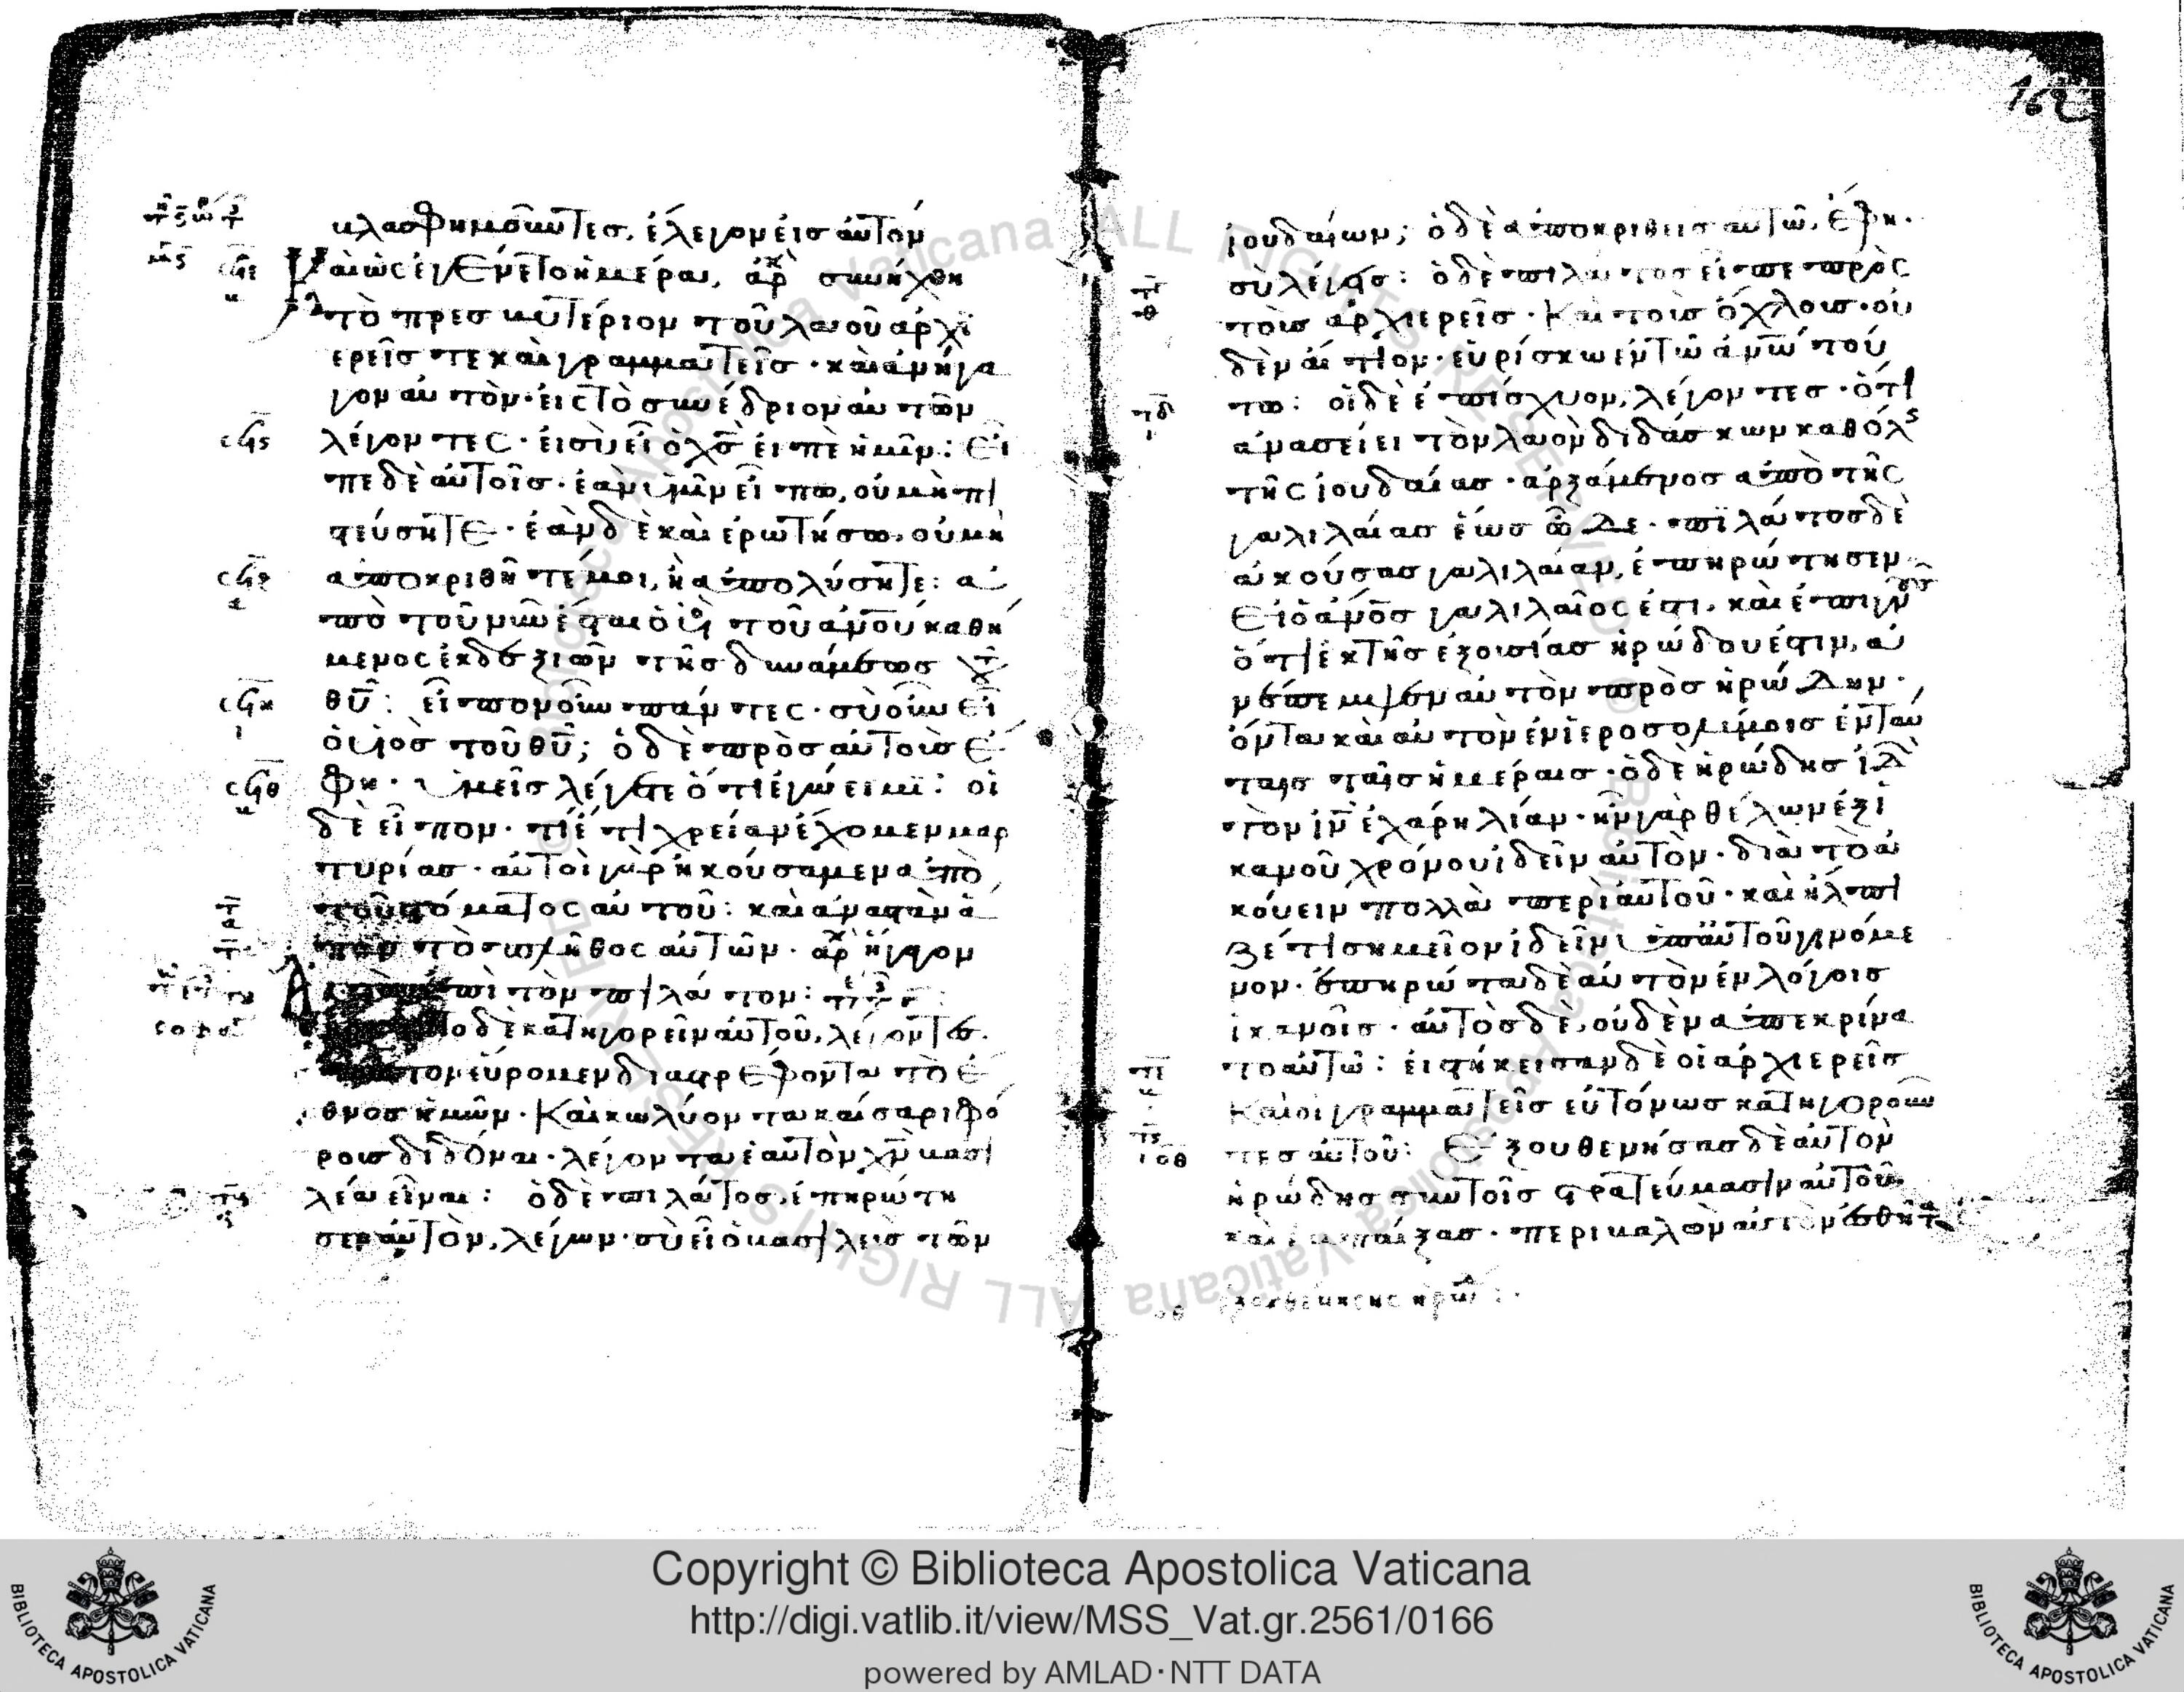 βλασφημοῦντες, ἔλεγον εἰς αὐτόν
Καὶ ὡς ἐγένετο ἡμέρα, ἀρχ συνήχθη
τὸ πρεσβυτέριον τοῦ λαοῦ ἀρχι
ερεῖς τε καὶ γραμματεῖς· καὶ ἀνήγα
γον αὐτὸν· εἰς τὸ συνέδριον αὐτῶν
λέγοντες· εἰ σὺ εἶ ὁ χς εἰπὲ ἡμῖν: εἶ
πε δὲ αὐτοῖς· ἐὰν ὑμῖν εἴπω, οὐ μὴ πι
στεύσητε· ἐὰν δὲ καὶ ἐρωτήσω, οὐ μὴ
ἀποκριθῆτέ μοι, ἢ ἀπολύσητε: ἀ
πὸ τοῦ νῦν ἔσται ὁ υἱὸς τοῦ ἀνου καθή
μενος ἐκ δεξιῶν τῆς δυνάμεως τ
θυ: εἶπον οὖν πάντες· σὺ οὖν εἶ
ὁ υἱὸς τοῦ θυ; ὁ δὲ πρὸς αὐτοὺς ἔ
φη· ὑμεῖς λέγετε ὅτι ἐγώ εἰμι: οἱ
δὲ εἶπον· τί ἔτι χρείαν ἔχομεν μαρ
τυρίας· αὐτοὶ γὰρ ἠκούσαμεν ἀπὸ
τοῦ στόματος αὐτοῦ: καὶ ἀναστὰν ἅ
παν τὸ πλῆθος αὐτῶν· ἀρχ ἤγαγον
ἐπὶ τὸν πιλάτον:
το δὲ κατηγορεῖν αὐτοῦ, λέγοντες·
τον εὕρομεν διαστρέφοντα τὸ ἔ
θνος ἡμῶν· καὶ κωλύοντα καίσαρι φό
ρους διδόναι· λέγοντα ἑαυτὸν χν βασι
λέα εἶναι: ὁ δὲ πιλάτος ἐπηρώτη
σεν αὐτὸν, λέγων· σὺ εἶ ὁ βασιλεὺς τῶν
162
ἰουδαίων; ὁ δὲ ἀποκριθεὶς αὐτῶ, ἔφη·
σὺ λέγεις: ὁ δὲ πιλάτος εἶπε πρὸς
τοὺς ἀρχιερεῖς· καὶ τοὺς ὄχλους· οὐ
δὲν αἴτιον· εὑρίσκω ἐν τῶ ἀνω τού
τω: οἱ δὲ ἐπίσχυον, λέγοντες· ὅτι
ἀνασείει τὸν λαὸν διδάσκων καθόλς
τῆς ἰουδαίας· ἀρξάμενος ἀπὸ τῆς
γαλιλαίας ἕως ὧδε· πιλάτος δὲ
ἀκούσας γαλιλαίαν, ἐπηρώτησεν
εἰ ὁ ἀνος γαλιλαῖος ἐστι· καὶ ἐπιγνοὺς
ὅτι ἐκ τῆς ἐξουσίας ἡρώδου ἐστιν, ἀ
νέπεμψεν αὐτὸν πρὸς ἡρώδην·
ὄντα καὶ αὐτὸν ἐν ἱεροσολύμοις ἐν ταύ
ταις ταῖς ἡμέραις· ὁ δὲ ἡρώδης ἰδ
τὸν ιν ἐχάρη λίαν· ἦν γὰρ θέλων ἐξ ἱ
κανοῦ χρόνου ἰδεῖν αὐτὸν· διὰ τὸ ἀ
κούειν πολλὰ περὶ αὐτοῦ· καὶ ἤλπι
ζέ τι σημεῖον ἰδεῖν ὑπ' αὐτοῦ γινόμε
νον· ἐπηρώτα δὲ αὐτὸν ἐν λόγοις
ἱκανοῖς· αὐτὸς δὲ, οὐδὲν ἀπεκρίνα
το αὐτῶ: εἱστήκεισαν δὲ οἱ ἀρχιερεῖς
καὶ οἱ γραμματεῖς εὐτόνως κατηγοροῦν
τες αὐτοῦ: ἐξουθενήσας δὲ αὐτὸν
ἡρώδης σὺν τοῖς στρατεύμασιν αὐτοῦ,
καὶ ἐμπαίξας· περιβαλὼν αὐτὸν ἐσθῆτ
Copyright © Biblioteca Apostolica Vaticana
http://digi.vatlib.it/view/MSS_Vat.gr.2561/0166
powered by AMLAD·NTT DATA
BIBLIOTECA APOSTOLICA VATICANA
BIBLIOTECA APOSTOLICA VATICANA